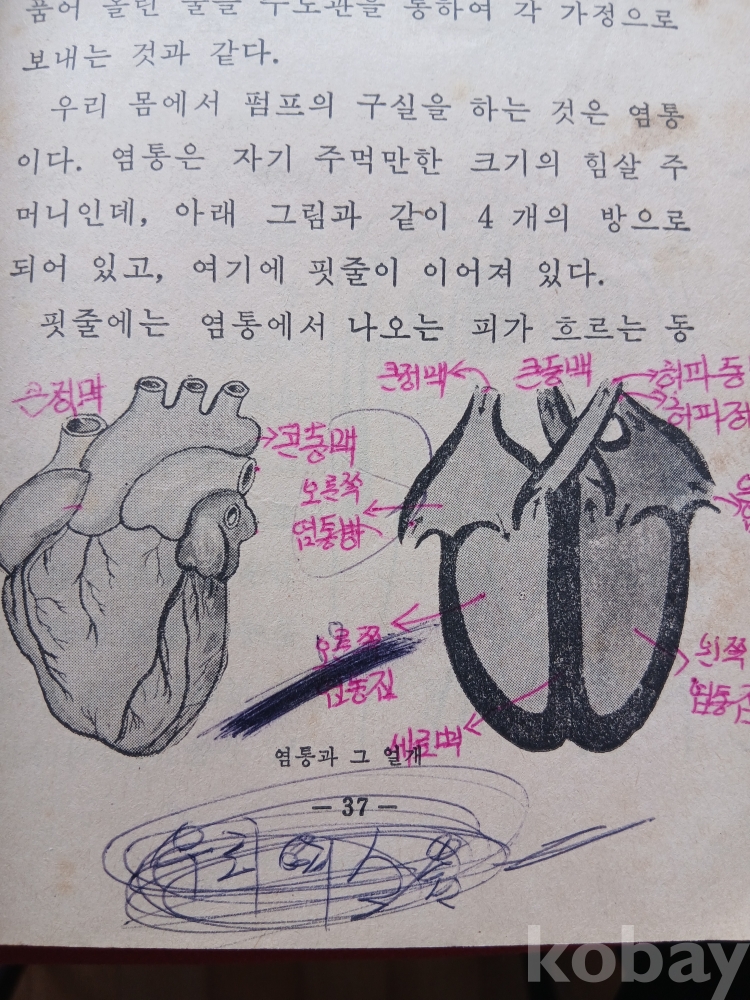 품어 올린 물을 수도관을 통하여 각 가정으로
보내는 것과 같다.
우리 몸에서 펌프의 구실을 하는 것은 염통
이다. 염통은 자기 주먹만한 크기의 힘살 주
머니인데, 아래 그림과 같이 4 개의 방으로
되어 있고, 여기에 핏줄이 이어져 있다.
핏줄에는 염통에서 나오는 피가 흐르는 동
큰정맥
큰동맥
큰정맥
큰동맥
허파동
허파정
오른쪽
염통방
오른쪽
염통집
왼쪽
염통집
세로벽
염통과 그 얼개
— 37 —
우리
kobay